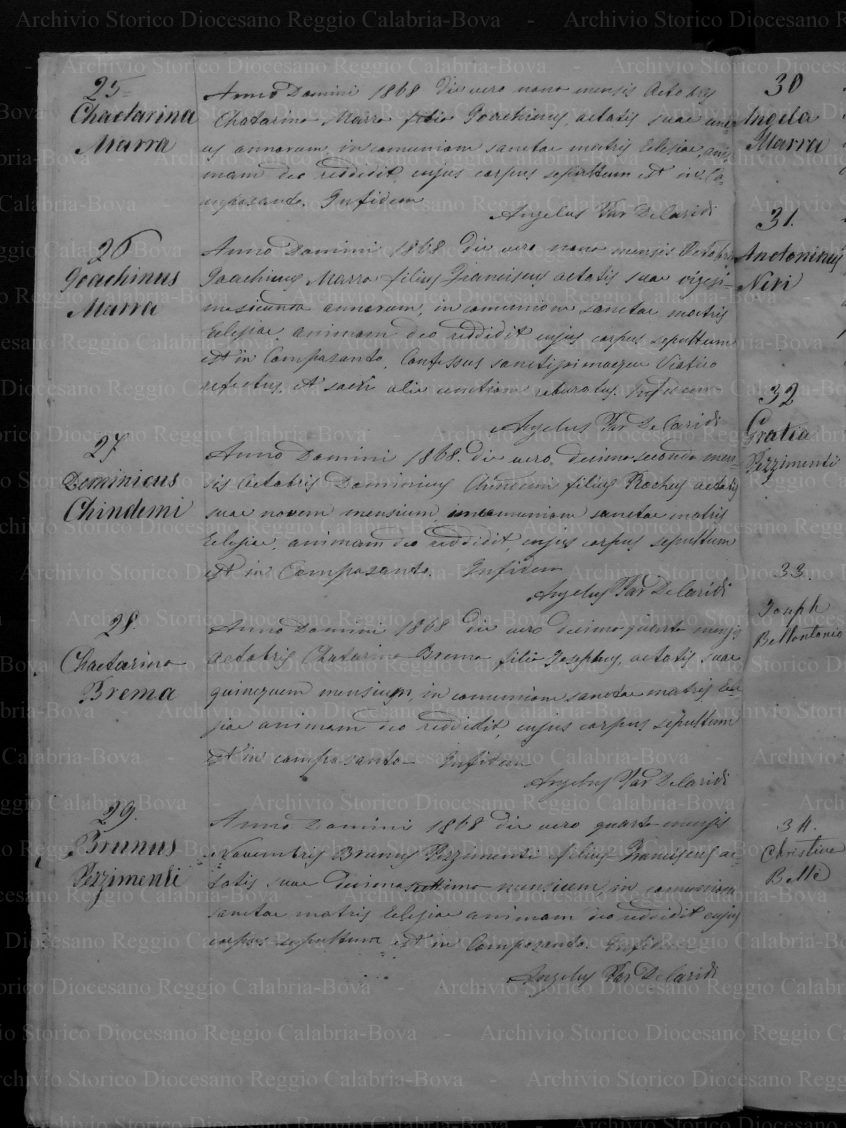 25
Chactarina
Marra
Anno Domini 1868 die vero nono mensis Octobris
Chatarina Marra filia Joachinus, aetatis suae
annorum, in comuniom sanctae matris Eclesiae, ani
mam deo reddidit, cujus corpus sepultum est in Ca
mposanto. Infidem
Angelus Par DeCaridi
26
Joachinus
Marra
Anno Domini 1868 die vero nono mensis Octobris
Joachinus Marra filius Franciscus aetatis suae vigesi
annorum, in comuniom sanctae matris
Eclesiae, animam deo reddidit cujus corpus sepultum
est in Composanto. Confessus Viatico
refectus, et sacri olei unctiom roboratus. Infidem
Angelus Par DeCaridi
27
Dominicus
Chindemi
Anno Domini 1868. die vero decimosecondo men
sis Octobris Dominicus Chindemi filius Rochus aetatis
suae novem mensium incomuniom sanctae matris
Eclesiae, animam deo reddidit, cujus corpus sepultum
est in Composanto. Infidem
Angelus Par DeCaridi
28
Chactarina
Brema
Anno Domini 1868 die vero decimoquarto mensis
Octobris Chatarina Brema filia Josephus, aetatis suae
quinquem mensium, in comuniom sanctae matris Ecle
siae animam deo reddidit, cujus corpus sepultum
est in composanto Infidem
Angelus Par DeCaridi
29.
Brunus
Pezzimenti
Anno Domini 1868 die vero quarto mensis
Novembris Brunus Pezzimenti filius Franciscus ae
tatis suae mensium, in comuniom
sanctae matris Eclesiae animam deo reddidit cujus
corpus sepultum est in Composanto. Infidem
Angelus Par DeCaridi
30
Angela
Marra
31.
Andoninus
Neri
32
Gratia
Pezzimenti
33.
Joseph
Bellantonio
34.
Christina
Bellè
Archivio Storico Diocesano Reggio Calabria-Bova